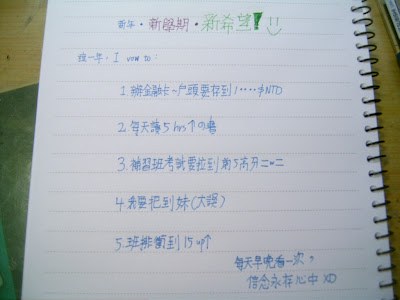 新年・新學期・新希望!=)
這一年, I vow to:
1. 辦金融卡~戶頭要存到 1‥‥ $NTD
2. 每天讀 5 hrs↑の書
3. 補習班考試要拉到 前5高分 =.=
4. 我要把到妹(大誤)
5. 班排衝到 15 up↑
每天早晚看一次,
信念永存心中 XD